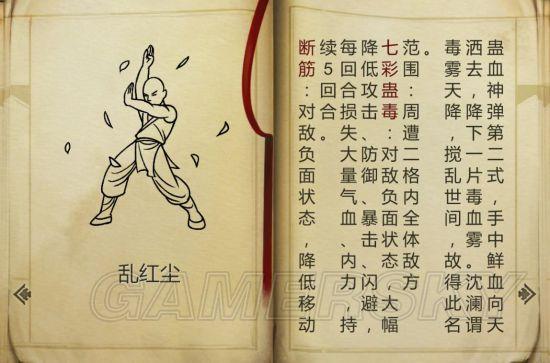 蛊血神弹第二式,手中鲜血向天
洒去,降下一片毒血雾。沈澜谓
毒雾天降,搅乱世间,故得此名
。
范围:周遭二格内全体敌方
七彩蛊毒:对敌负面状态,大幅
降低攻击、防御、暴击、闪避,
每回合损失大量气、血、内力,持
续5回合。
断筋:对敌负面状态,降低移动
乱红尘
GAMERSKY